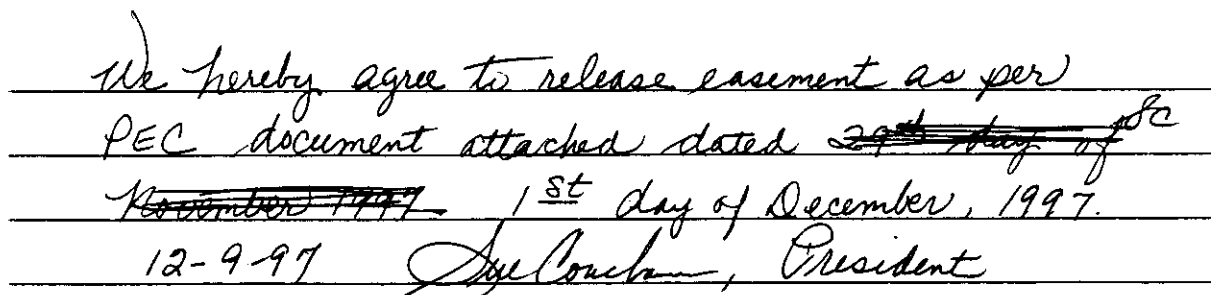 We hereby agree to release easement as per
PEC document attached dated 29th day of SC
November 1997 1st day of December, 1997.
12-9-97 Sue, President